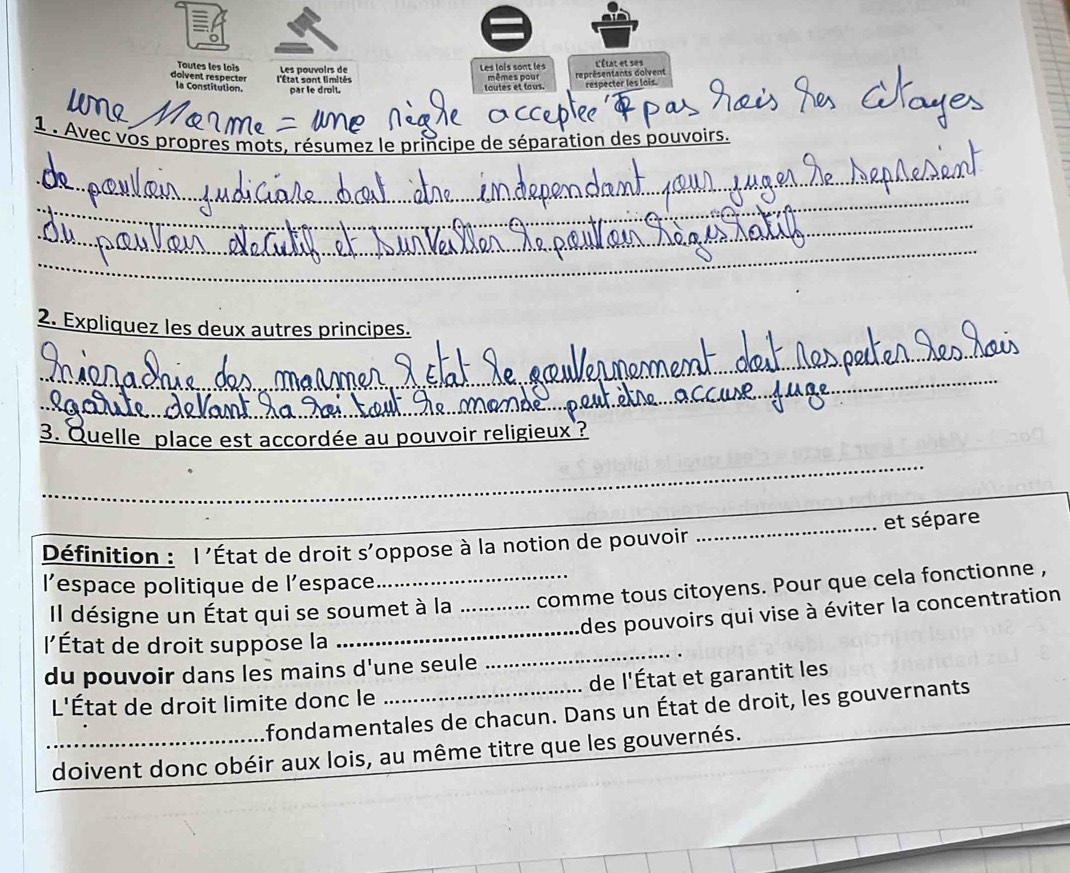 Toutes les lois doivent respecter la Constitution.
Les pouvoirs de l'État sont limités par le droit.
Les lois sont les mêmes pour toutes et tous.
L'État et ses représentants doivent respecter les lois.
une Norme = une règle acceptée pas lois les citoyes
1. Avec vos propres mots, résumez le principe de séparation des pouvoirs.
de pouvoir judiciare doit être independant pour juger le représent
du pouvoir executif et surveiller le pouvoir législatif
2. Expliquez les deux autres principes.
hierachie des normes l'état le gouvernement doit respecter les lois
egalite devant la loi tout le monde peut être accuse juge
3. Quelle place est accordée au pouvoir religieux ?
Définition : l'État de droit s'oppose à la notion de pouvoir .......... et sépare
l'espace politique de l'espace..........
Il désigne un État qui se soumet à la .......... comme tous citoyens. Pour que cela fonctionne ,
l'État de droit suppose la ..........des pouvoirs qui vise à éviter la concentration
du pouvoir dans les mains d'une seule ..........
L'État de droit limite donc le .......... de l'État et garantit les
..........fondamentales de chacun. Dans un État de droit, les gouvernants
doivent donc obéir aux lois, au même titre que les gouvernés.